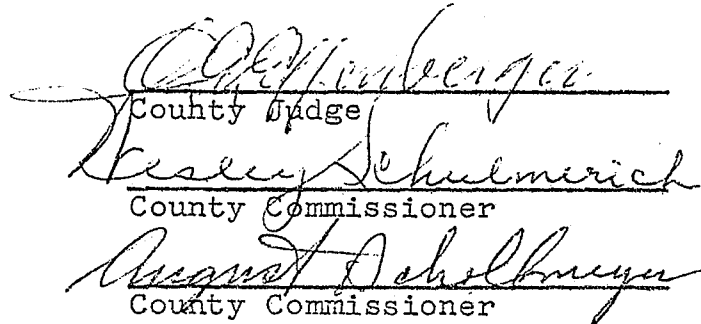 County Judge
Wesley Schulmerich
County Commissioner
August Schollmeyer
County Commissioner